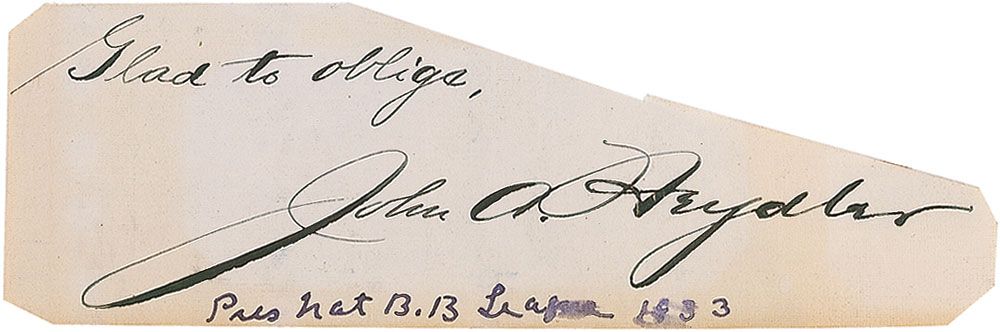 Glad to oblige,
John A. Heydler
Pres Nat B.B League 1933